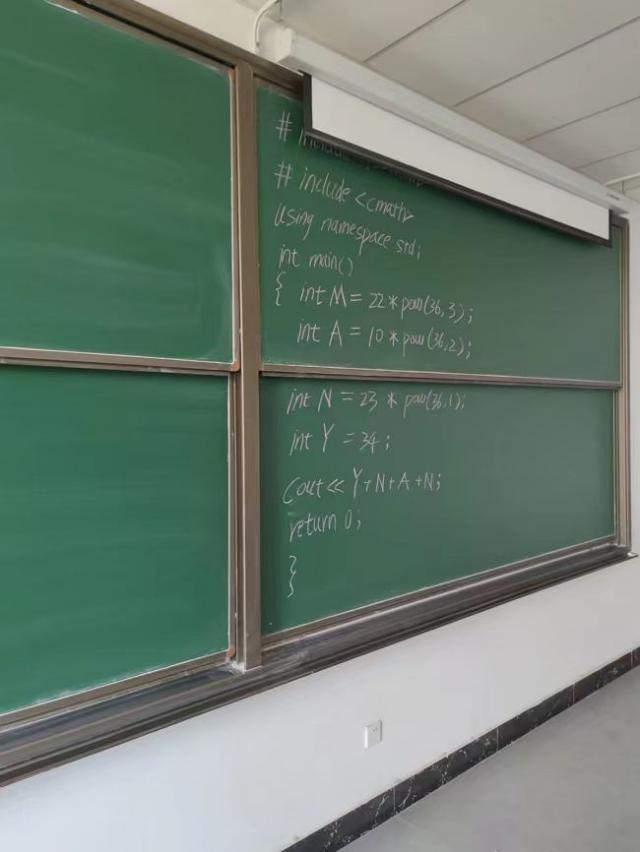 #
# include <cmath>
using namespace std;
int main()
{ int M = 22 * pow(36,3);
int A = 10 * pow(36,2);
int N = 23 * pow(36,1);
int Y = 34;
cout << Y+N+A+N;
return 0;
}